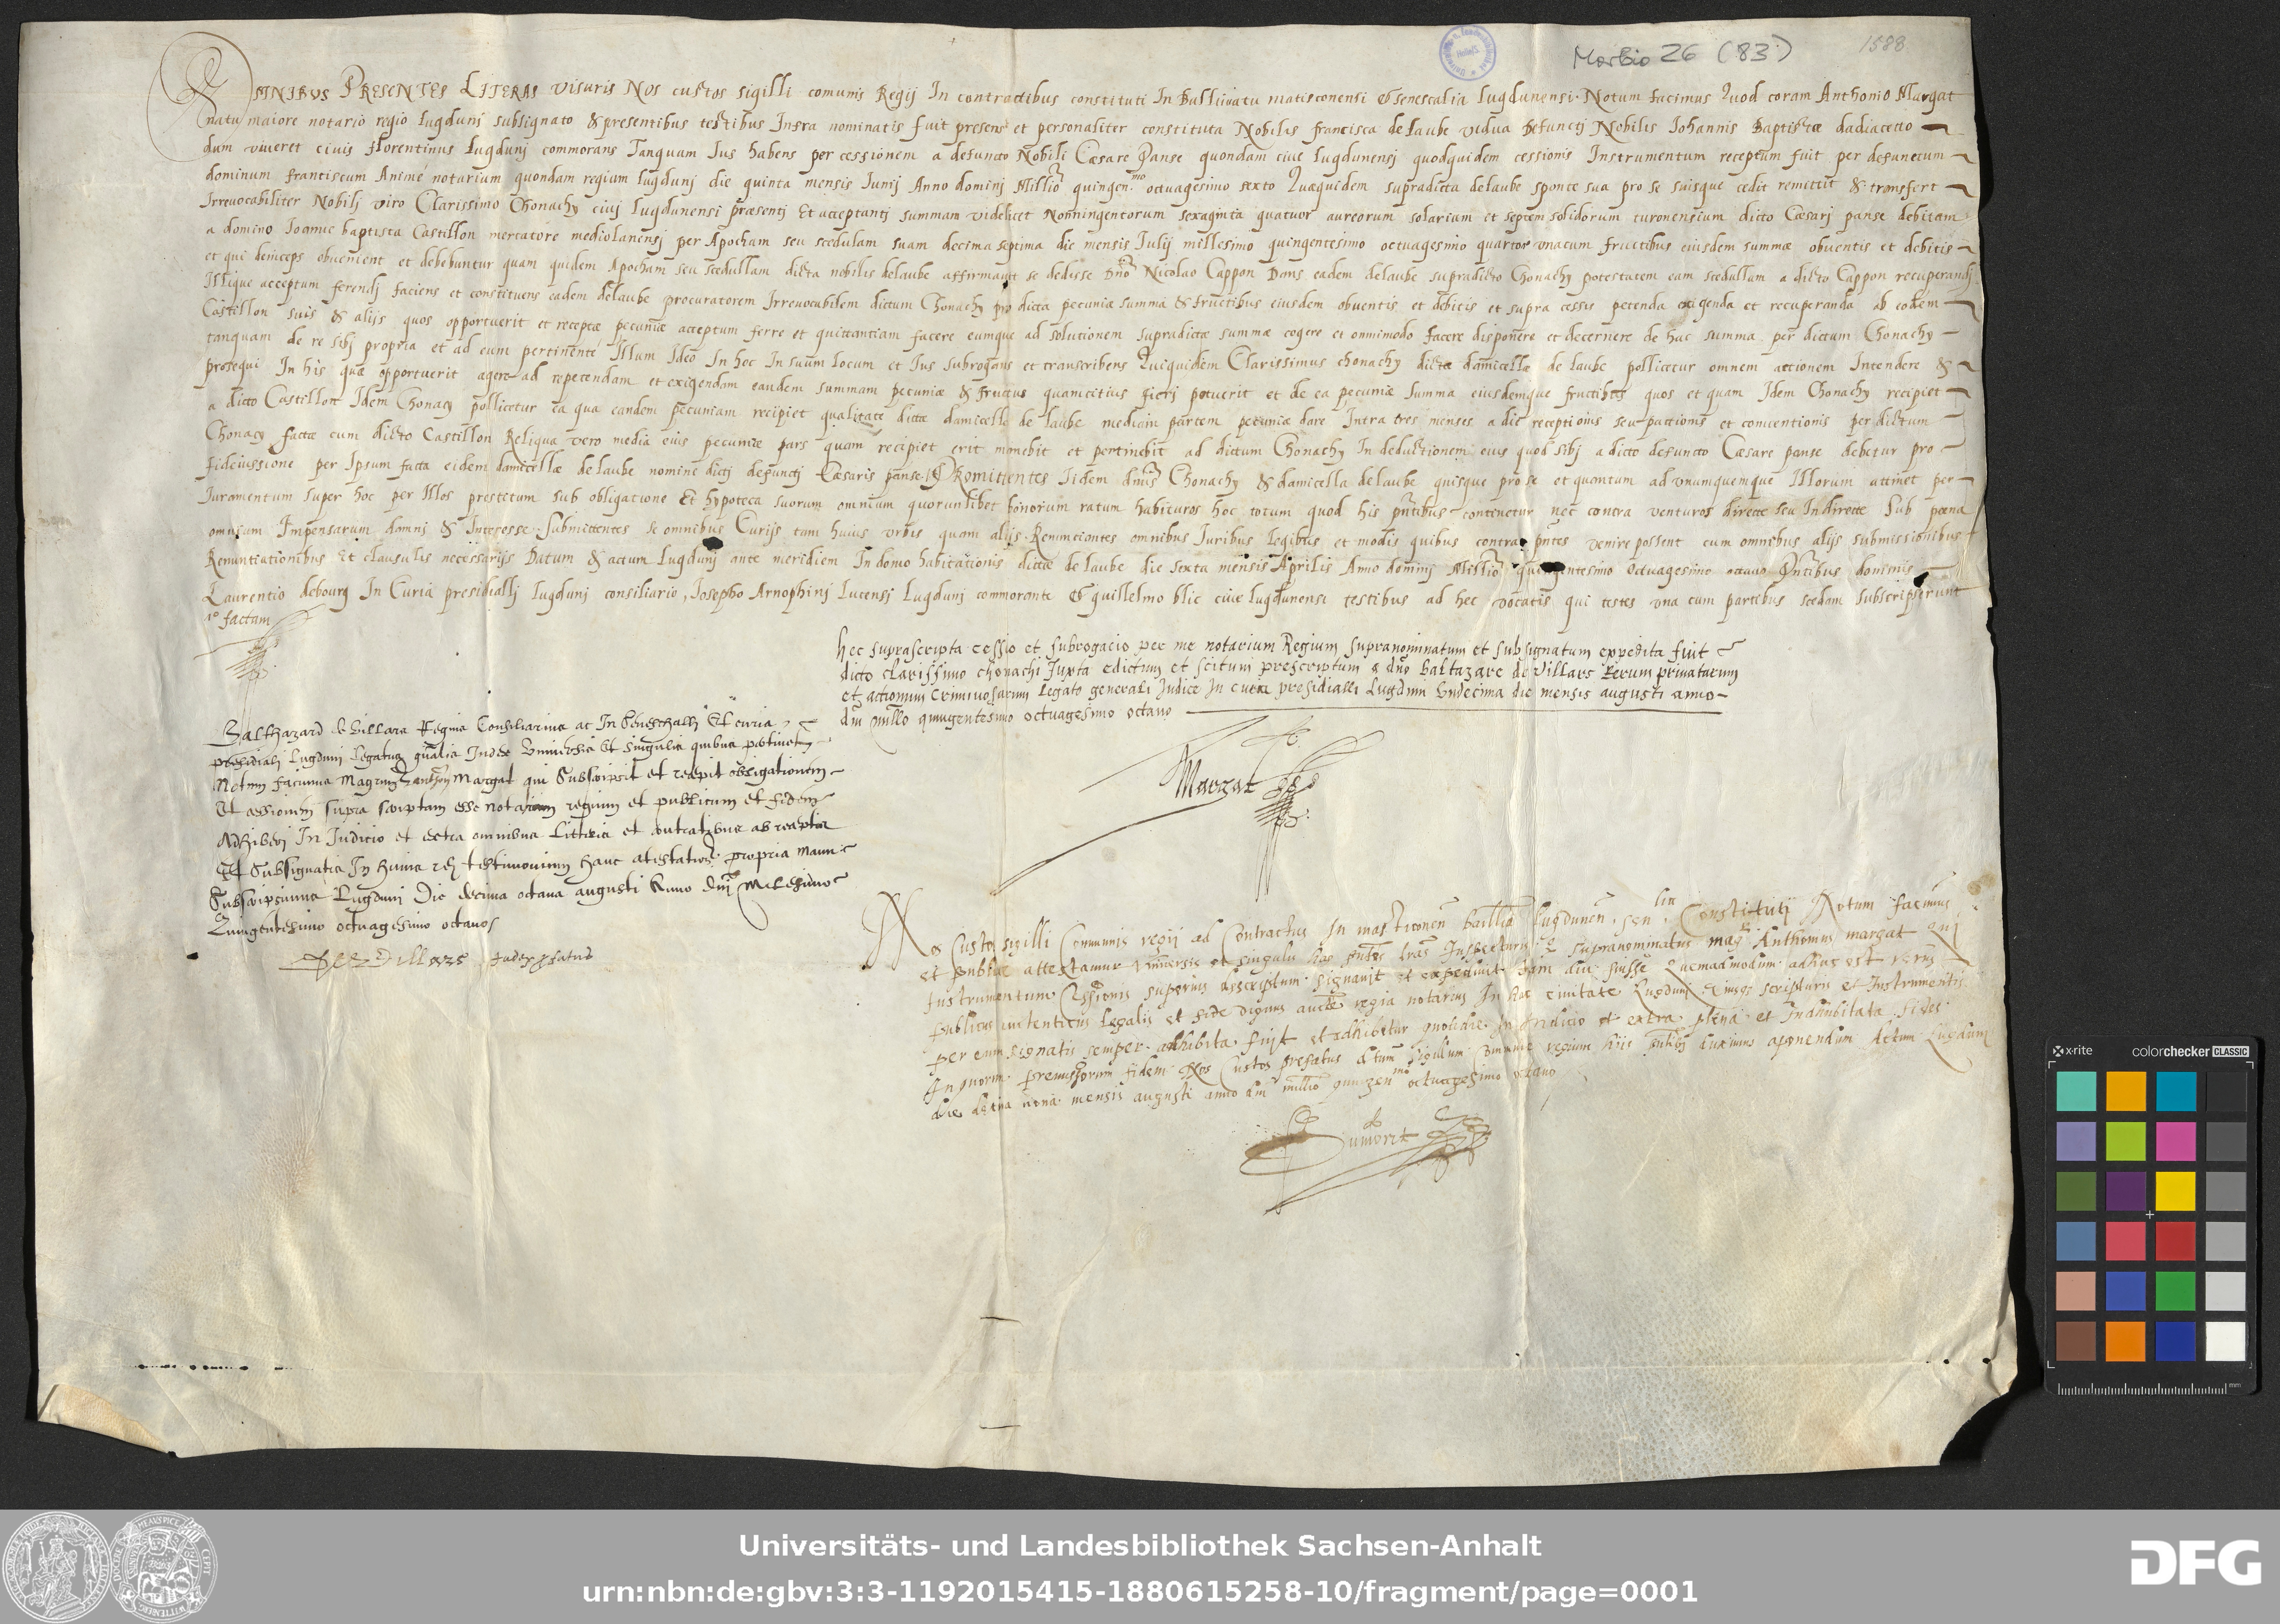 Morbio 26 (83)
1588
OMNIBVS PRESENTES LITERAS visuris Nos custos sigilli comunis Regij In contractibus constituti In Balliuatu matisconensi & senescalia lugdunensi. Notum facimus Quod coram Anthonio Margat
natu maiore notario regio lugdunj subsignato & presentibus testibus Infra nominatis fuit presens et personaliter constituta Nobilis francisca de laube vidua defunctj Nobilis Iohannis Baptistæ dadiacetto
dum viueret ciuis florentinus lugdunj commorans Tanquam Ius habens per cessionem a defuncto Nobili Cæsare Panse quondam ciue lugdunensj quodquidem cessionis Instrumentum receptum fuit per defunctum
dominum franciscum Animé notarium quondam regium lugdunj die quinta mensis Iunij Anno dominj Millio quingen.mo octuagesimo sexto Quæquidem supradicta delaube sponte sua pro se suisque cedit remittit & transfert
Irreuocabiliter Nobilj viro Clarissimo Chonachy ciuj lugdunensi præsentj Et acceptantj summam videlicet Nonningentorum sexaginta quatuor aureorum solarium et septem solidorum turonensium dicto Cæsarj panse debitam
a domino Ioanne baptista Castillon mercatore mediolanensj per Apocham seu scedulam suam decima septima die mensis Iulij millesimo quingentesimo octuagesimo quarto vnacum fructibus eiusdem summæ obuentis et debitis
et qui deinceps obuenient et debebuntur quam quidem Apocham seu scedullam dicta nobilis delaube affirmauit se dedisse Dno Nicolao Cappon Dans eadem delaube supradicto Chonachy potestatem eam scedullam a dicto Cappon recuperandj
Illique acceptum ferendj faciens et constituens eadem delaube procuratorem Irreuocabilem dictum Chonachy pro dicta pecuniæ summa & fructibus eiusdem obuentis et debitis et supra cessis petenda exigenda et recuperanda ab eodem
Castillon suis & alijs quos opportuerit et receptæ pecuniæ acceptum ferre et quittantiam facere eumque ad solutionem supradictæ summæ cogere et omnimodo facere disponere et decernere de hac summa per dictum Chonachy
tanquam de re sibj propria et ad eum pertinente Illum Ideo In hoc In suum locum et Ius subrogans et transcribens Quiquidem Clarissimus chonachy dictæ damicellæ de laube pollicetur omnem actionem Intendere &
prosequi In his quæ opportuerit agere ad repetendam et exigendam eandem summam pecuniæ & fructus quamcitius fierj potuerit et de ea pecuniæ summa eiusdemque fructibus quos et quam Idem Chonachy recipiet
a dicto Castillon Idem Chonacy pollicetur ea qua eandem pecuniam recipiet qualitate dictæ damicellæ de laube mediam partem pecuniæ dare Intra tres menses a die receptionis seu pactionis et conuentionis per dictum
Chonacy factæ cum dicto Castillon Reliqua vero media eius pecuniæ pars quam recipiet erit manebit et pertinebit ad dictum Chonachy In deductionem eius quod sibj a dicto defuncto Cæsare panse debetur pro
fideiussione per Ipsum facta eidem damicellæ delaube nomine dictj defunctj Cæsaris panse. PRomittentes Iidem dnus Chonachy & damicella delaube quisque pro se et quantum ad vnumquemque Illorum attinet per
Iuramentum super hoc per Illos prestitum sub obligatione Et hypoteca suorum omnium quorumlibet bonorum ratum habituros hoc totum quod his pntibus continetur nec contra venturos directe seu Indirecte Sub pœna
omnium Impensarum damnj & Interesse. Submittentes se omnibus Curijs tam huius vrbis quam alijs Renunciantes omnibus Iuribus legibus et modis quibus contra pntes venire possent cum omnibus alijs submissionibus
Renuntiationibus Et clausulis necessarijs Datum & actum lugdunj ante meridiem In domo habitationis dictæ de laube die sexta mensis Aprilis Anno dominj Millio quingentesimo octuagesimo octauo Pntibus dominis
Laurentio debourg In Curia presidiallj lugdunj consiliario, Iosepho Arnophinj lucensj lugdunj commorante & guillelmo blic ciue lugdunense testibus ad hec vocatis qui testes vna cum partibus scedam subscripserunt
factam
hec suprascripta cessio et subrogacio per me notarium Regium supranominatum et subsignatum expedita fuit
dicto clarissimo chonachi Iuxta edictum et scitum prescriptum a dno baltazare de villars Rerum priuatarum
et actionum criminosarum legato generali Iudice In curia presidialli lugduni vndecima die mensis augusti anno
dni millo quingentesimo octuagesimo octauo
Margat
Balthazard de Villars Regius Consiliarius ac In seneschallj Et curia
presidialj lugdunj legatus gnalis Iudex vniuersis Et singulis quibus pertinet
Notum facimus Magrum anthonj Margat qui subscripsit et recepit obligationem
Et cessionem supra scriptam esse notarium regium et publicum et fidem
Adhiberj In Iudicio et extra omnibus litteris et contratibus ab receptis
Et subsignatis In huius rej testimonium hanc atestationem propria manu
subscripsimus Lugdunj Die decima octaua augusti Anno dnj Millesimo
Quingentesimo octuagesimo octauo
De Villars Iudex prefatus
Nos Custos sigilli Communis regij ad Contractus In masticonen bailliua lugdunen. sen.lia Constituti Notum facimus
et attestamur vniuersis et singulis has pntes lras Inspecturis supranominatus magr Anthonius margat qui
Instrumentum Cessionis superius descriptum signauit et expediuit tam diu fuisse Quemadmodum adhuc est verus
publicus autenticus legalis et fide dignus aucte regia notarius In hac ciuitate lugdunj Eiusqs scripturis et Instrumentis
per eum signatis semper adhibita fuit et adhibetur quotidie In Iudicio et extra plena et Indubitata fides
In quorum premissorum fidem Nos Custos prefatus dtum sigillum commune regium hijs pntibus duximus aponendum Actum Lugduni
die decima nona mensis augusti anno dni millio quingen.mo octuagesimo octauo
Universitäts- und Landesbibliothek Sachsen-Anhalt
urn:nbn:de:gbv:3:3-1192015415-1880615258-10/fragment/page=0001
DFG
x-rite colorchecker CLASSIC
mm